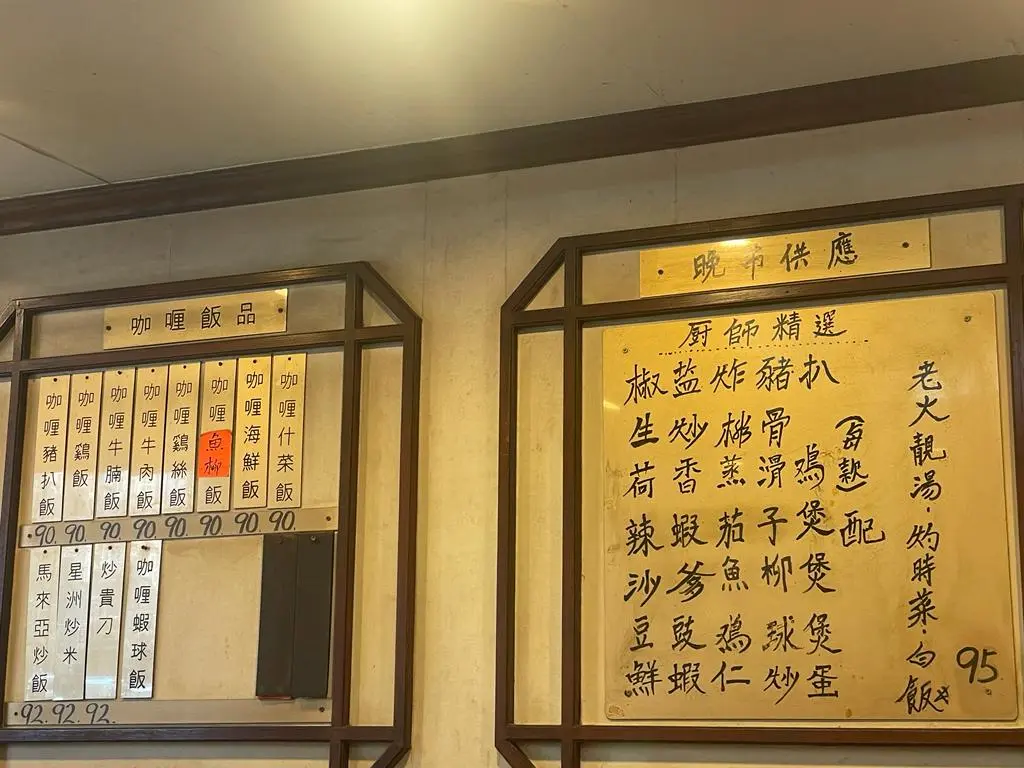 咖喱飯品
咖喱豬扒飯
咖喱鷄飯
咖喱牛腩飯
咖喱牛肉飯
咖喱鷄絲飯
咖喱魚柳飯
咖喱海鮮飯
咖喱什菜飯
90. 90. 90. 90. 90. 90. 90. 90.
馬來亞炒飯
星洲炒米
炒貴刀
咖喱蝦球飯
92. 92. 92.
晚市供應
厨師精選
椒盐炸豬扒
生炒排骨
荷香蒸滑鸡
辣蝦茄子煲
沙爹魚柳煲
豆豉鸡球煲
鮮蝦仁炒蛋
(每款)配
老火靚湯·灼時菜·白飯
95